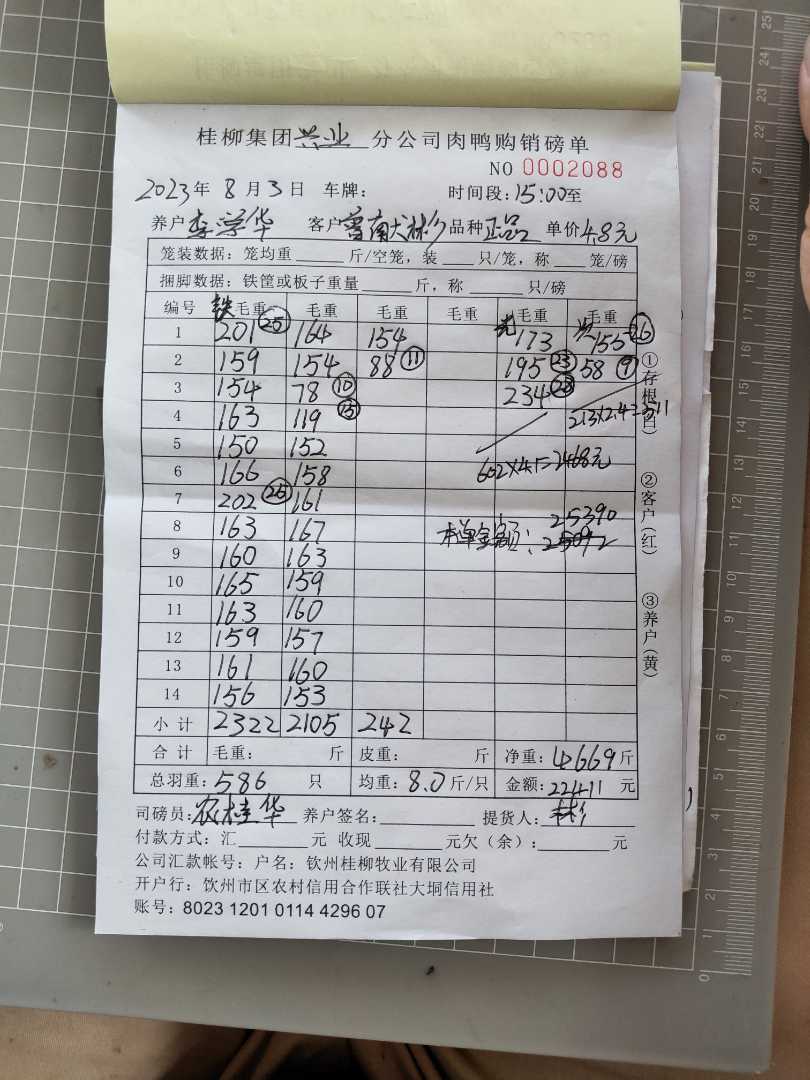 桂柳集团兴业分公司肉鸭购销磅单
NO 0002088
2023年8月3日 车牌: 时间段:15:00至
养户李学华 客户 品种正品 单价4.8元
笼装数据:笼均重 斤/空笼,装 只/笼,称 笼/磅
捆脚数据:铁筐或板子重量 斤,称 只/磅
编号 毛重 毛重 毛重 毛重 毛重 毛重
1 201 25 164 154 173 次 155 26
2 159 154 88 11 195 23 58 9
3 154 78 10 234 28
4 163 119 15 213×2.4=511
5 150 152
6 166 158 602×4.1=2468元
7 202 25 161
8 163 167 25390
9 160 163 本单金额:
10 165 159
11 163 160
12 159 157
13 161 160
14 156 153
小计 2322 2105 242
合计 毛重: 斤 皮重: 斤 净重:4669斤
总羽重:586 只 均重:8.0斤/只 金额:22411元
司磅员:农桂华 养户签名: 提货人:
付款方式:汇 元 收现 元欠(余): 元
公司汇款帐号:户名:钦州桂柳牧业有限公司
开户行:饮州市区农村信用合作联社大垌信用社
账号:8023 1201 0114 4296 07
①存根(白)
②客户(红)
③养户(黄)